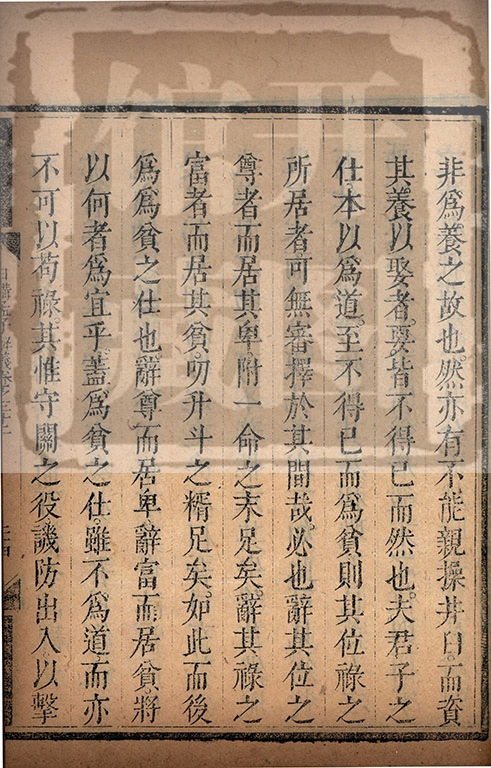 非爲養之故也然亦有不能親操井臼而資
其養以娶者要皆不得已而然也夫君子之
仕本以爲道至不得已而爲貧則其位祿之
所居者可無審擇於其間哉必也辭其位之
尊者而居其卑附一命之末足矣辭其祿之
富者而居其貧叨升斗之糈足矣如此而後
爲爲貧之仕也辭尊而居卑辭富而居貧將
以何者爲宜乎蓋爲貧之仕雖不爲道而亦
不可以苟祿其惟守關之役譏防出入以擊